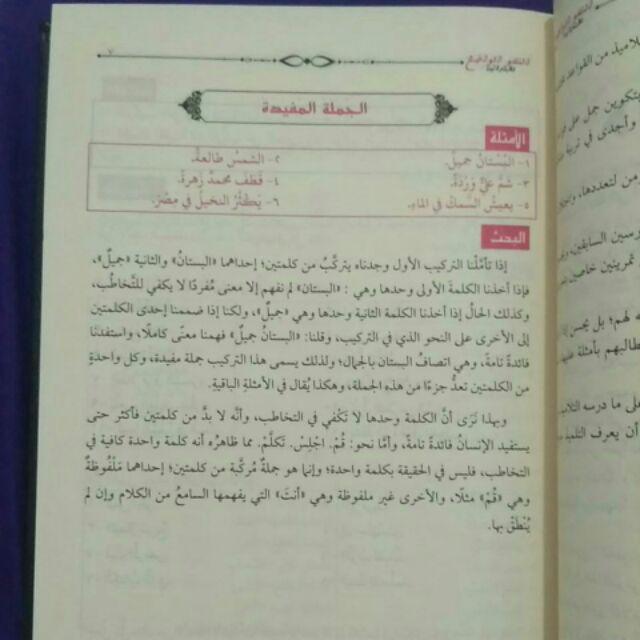 ٧
النحو الواضح
الجملة المفيدة
الأمثلة
١- البُسْتَانُ جميلٌ. ٢- الشمْسُ طالعةٌ.
٣- شَمَّ عَلِيٌّ وَرْدَةً. ٤- قطَفَ محمدٌ زَهرةً.
٥- يعيش السَّمكُ في الماءِ. ٦- يَكثُرُ النخيلُ في مِصْرَ.
البحث
إذا تأمَّلْنا التركيب الأول وجدناه يتركَّبُ من كلمتين؛ إحداهما «البستانُ» والثانية «جميلٌ»،
فإذا أخذنا الكلمةَ الأولى وحدها وهي: «البستان» لم نفهم إلا معنى مُفردًا لا يكفي للتَّخاطُب،
وكذلك الحالُ إذا أخذنا الكلمة الثانية وحدها وهي «جميلٌ»، ولكنا إذا ضممنا إحدى الكلمتين
إلى الأخرى على النحو الذي في التركيب، وقلنا: «البستانُ جميلٌ» فهمنا معنًى كاملًا، واستفدْنَا
فائدةً تامةً، وهي اتصافُ البستان بالجمال؛ ولذلك يسمى هذا التركيب جملة مفيدة، وكل واحدةٍ
من الكلمتين تعدُّ جزءًا من هذه الجملة، وهكذا يُقال في الأمثلةِ الباقيةِ.
وبهذا تَرَى أنَّ الكلمة وحدها لا تَكْفي في التخاطب، وأنَّه لا بدَّ من كلمتين فأكثر حتى
يستفيد الإنسانُ فائدةً تامةً، وأمَّا نحو: قُمْ. اجْلِسْ. تَكَلَّمْ. مما ظاهرُه أنه كلمة واحدة كافية في
التخاطب، فليس في الحقيقة بكلمة واحدة؛ وإنما هو جملةٌ مُركَّبة من كلمتين؛ إحداهما مَلْفُوظةٌ
وهي «قُمْ» مثلًا، والأخرى غير ملفوظة وهي «أنتَ» التي يفهمها السامعُ من الكلام وإن لم
يُنْطَقْ بها.